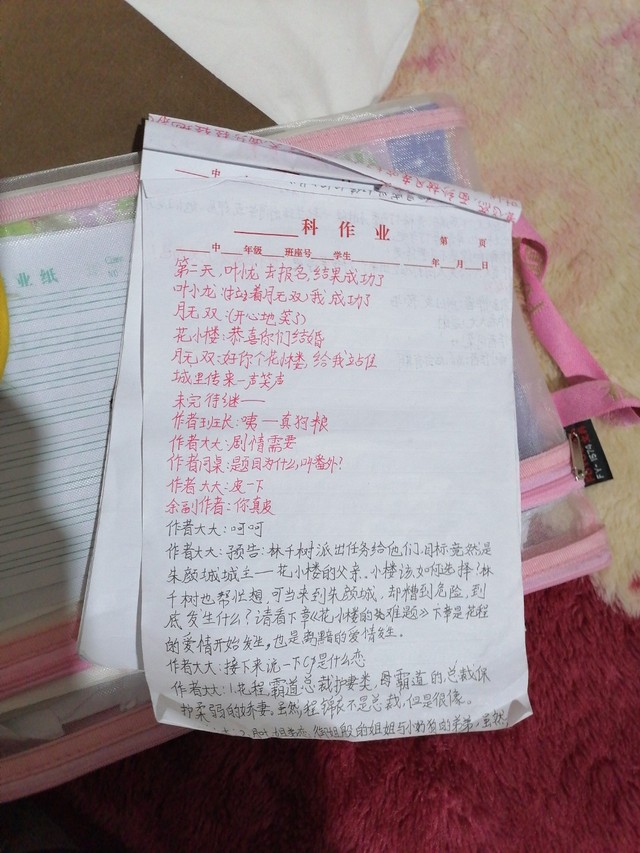 中
科作业 第 页
中 年级 班座号 学生 年 月 日
第二天,叶小龙去报名,结果成功了
叶小龙:(拉着月无双)我成功了
月无双:(开心地笑了)
花小楼:恭喜你们结婚
月无双:好你个花小楼,给我站住
城里传来一声笑声
未完待继——
作者班长:咦——真狗粮
作者大大:剧情需要
作者同桌:题目为什么叫番外?
作者大大:皮一下
余副作者:你真皮
作者大大:呵呵
作者大大:预告:林千树派出任务给他们,目标竟然是
朱颜城城主——花小楼的父亲.小楼该如何选择?林
千树也帮忙想,可当来到朱颜城,却遭到危险,到
底发生什么?请看下章《花小楼的为难题》下章是花程
的爱情开始发生,也是离黯的爱情发生。
作者大大:接下来说一下CP是什么恋
作者大大:1.花程,霸道总裁护妻类,毋霸道的总裁保
护柔弱的娇妻.虽然程锦衣不是总裁,但是很像。
的姐姐与小奶狗的弟弟,虽然
业纸
FY-1574